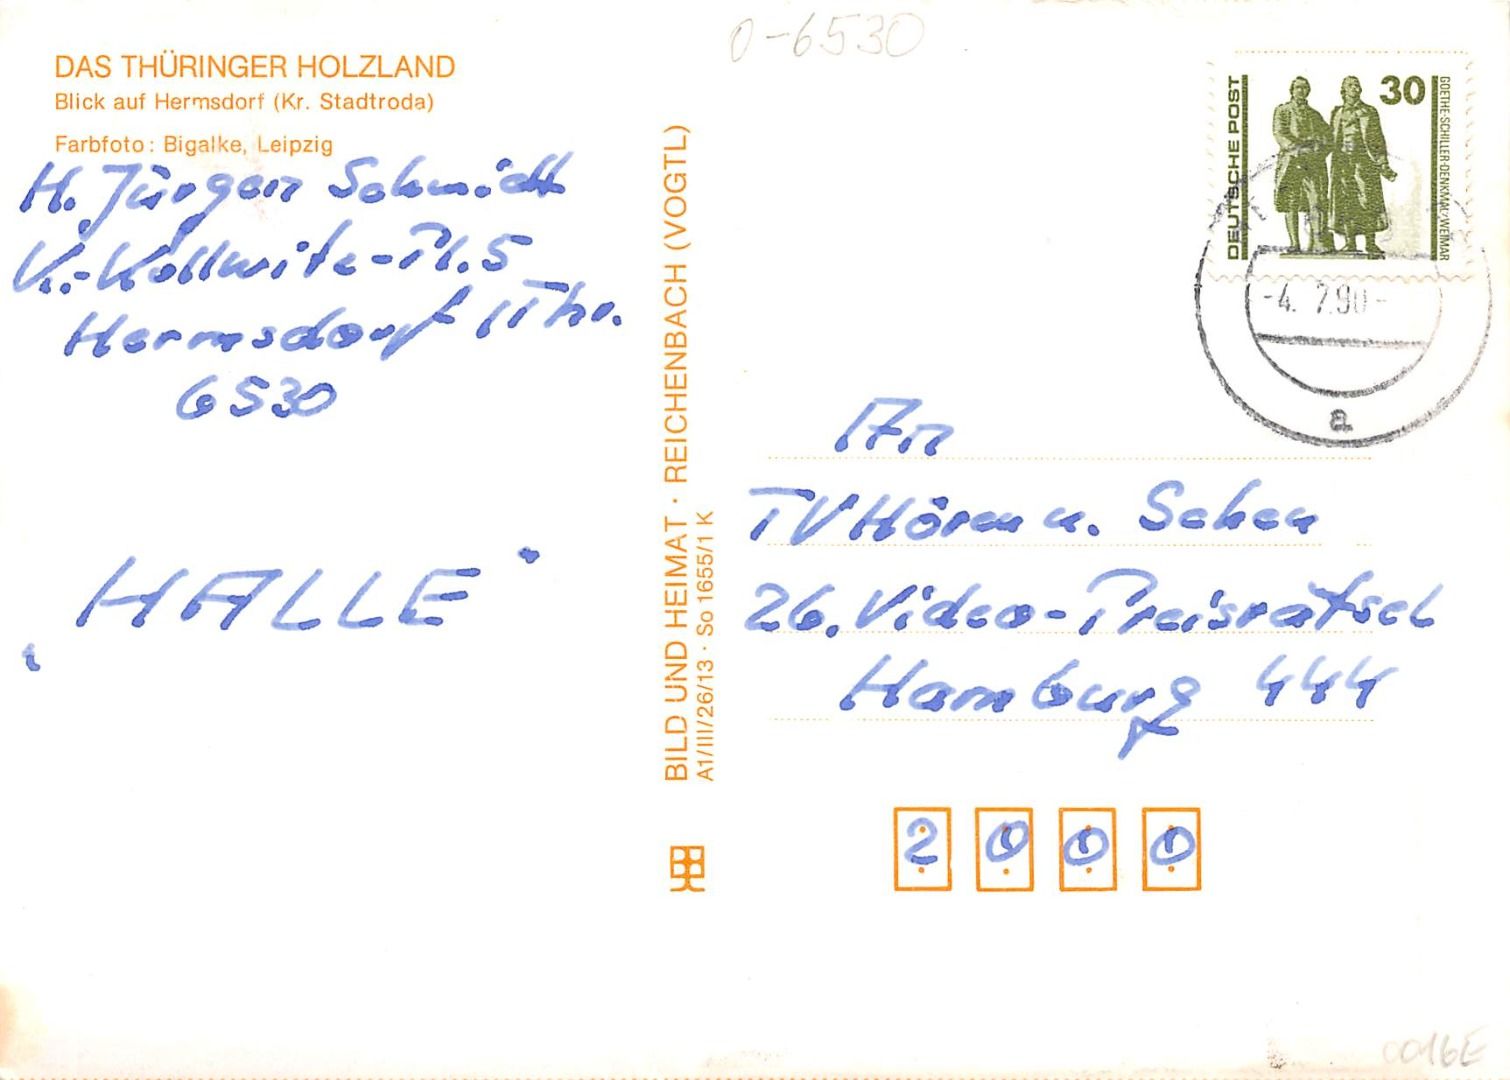 0-6530
DAS THÜRINGER HOLZLAND
Blick auf Hermsdorf (Kr. Stadtroda)
Farbfoto: Bigalke, Leipzig
H. Jürgen Schmidt
K.-Kollwitz-Pl. 5
Hermsdorf / Thr.
6530
"HALLE"
BILD UND HEIMAT · REICHENBACH (VOGTL)
A1/III/26/13 · So 1655/1 K
DEUTSCHE POST
30
GOETHE-SCHILLER-DENKMAL·WEIMAR
-4. 7.90-
a
An
TV Hören u. Sehen
26. Video-Preisrätsel
Hamburg 444
2000
0016E